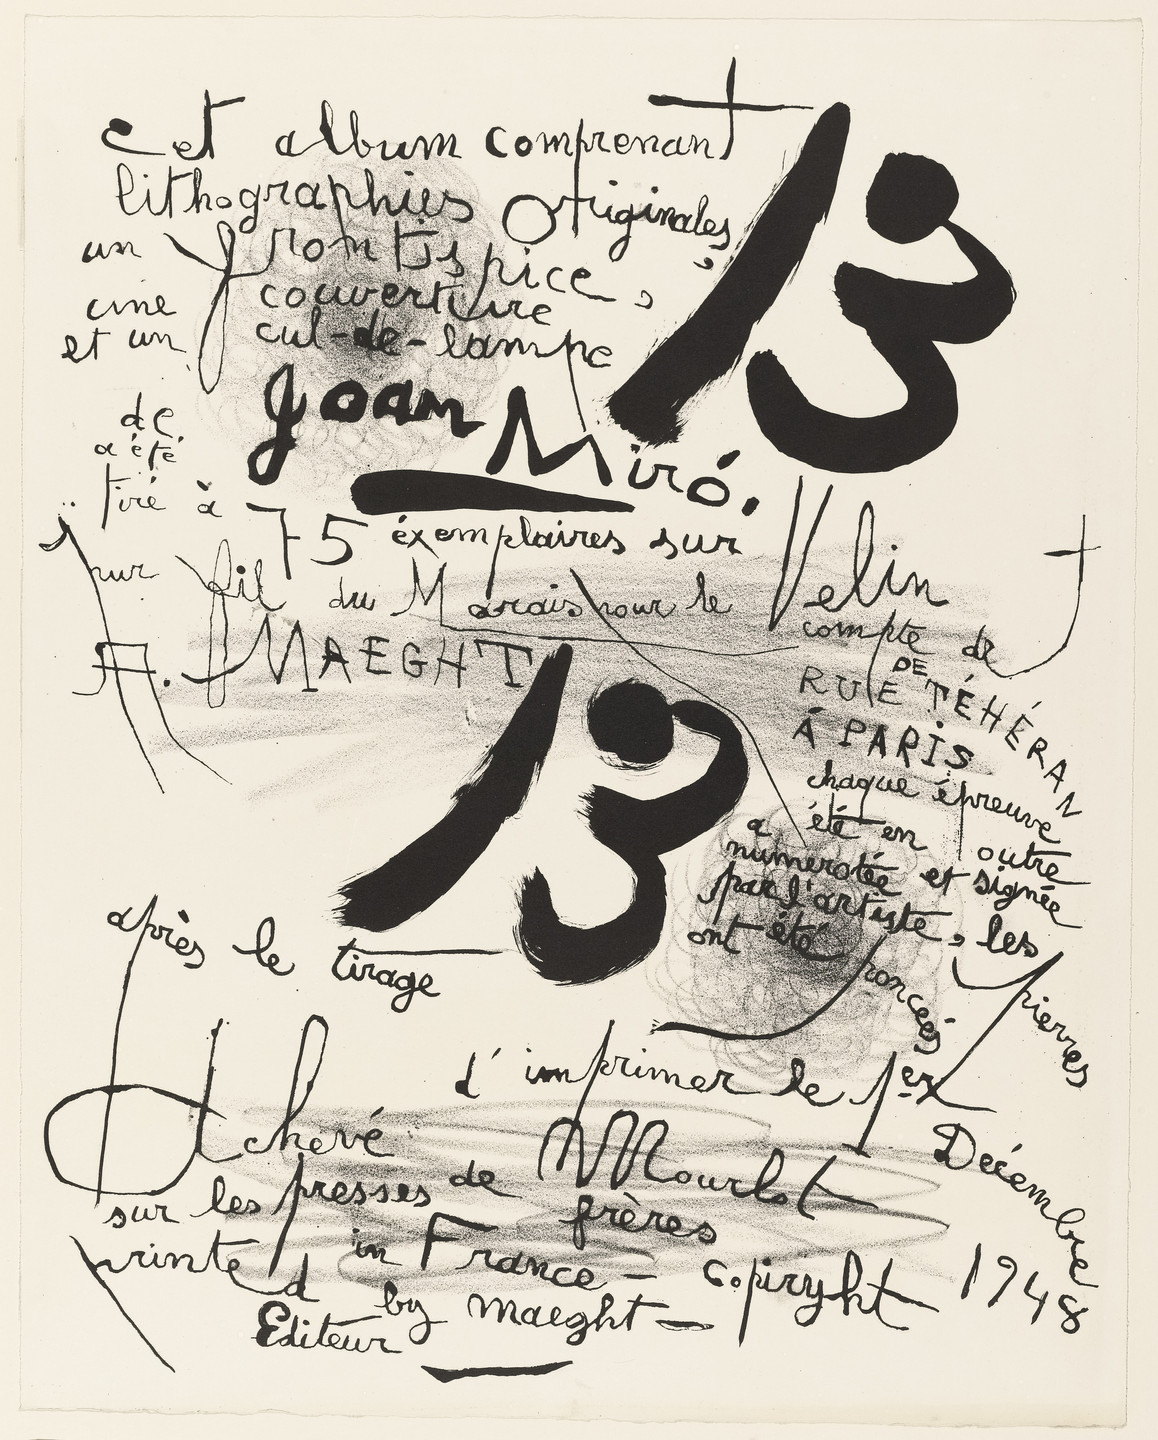 cet album comprenant 13
lithographies originales,
un frontispice,
une couverture
et un cul-de-lampe
de Joan Miró.
a été
tiré à 75 éxemplaires sur Velin
pur fil du Marais pour le compte de
A. MAEGHT 13 RUE DE TÉHÉRAN
À PARIS
chaque épreuve
a été en outre
numerotée et signée
par l'artiste, les pierres
ont été poncées
après le tirage
Achevé d'imprimer le 1er Décembre 1948
sur les presses de Mourlot
frères
printed in France — copiryht
by maeght —
Editeur